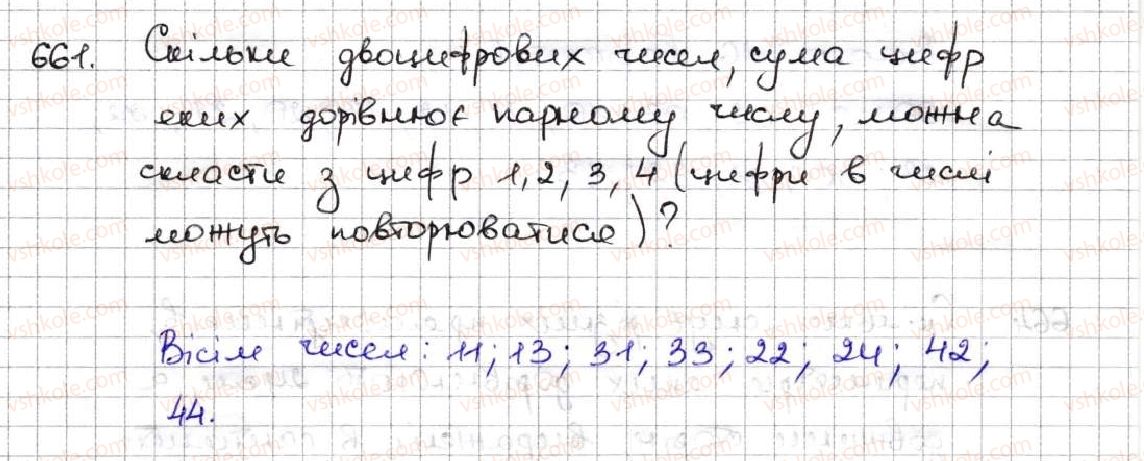 661. Скільки двоцифрових чисел, сума цифр
яких дорівнює парному числу, можна
скласти з цифр 1, 2, 3, 4 (цифри в числі
можуть повторюватися)?
Вісім чисел: 11; 13; 31; 33; 22; 24; 42;
44.